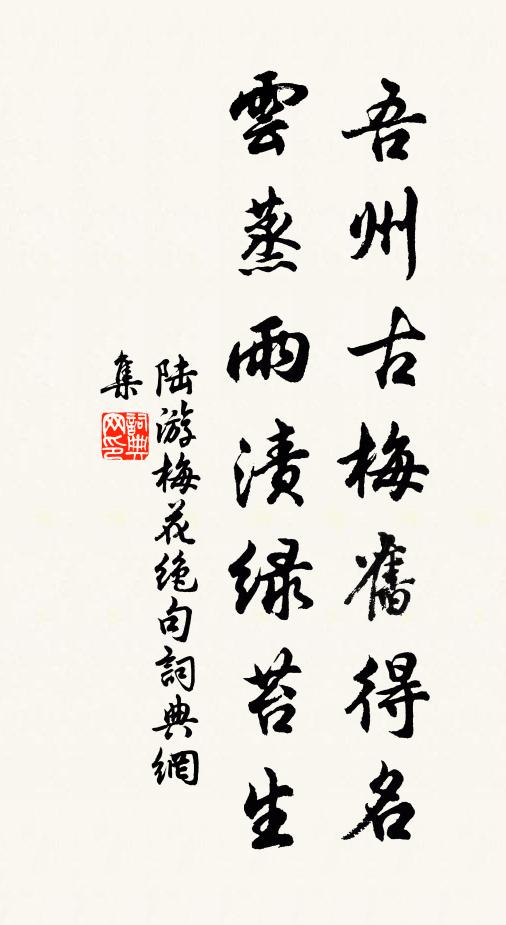 吾州古梅舊得名
雲蒸雨漬緑苔生
陆游梅花绝句詞典網
集
詞典网印